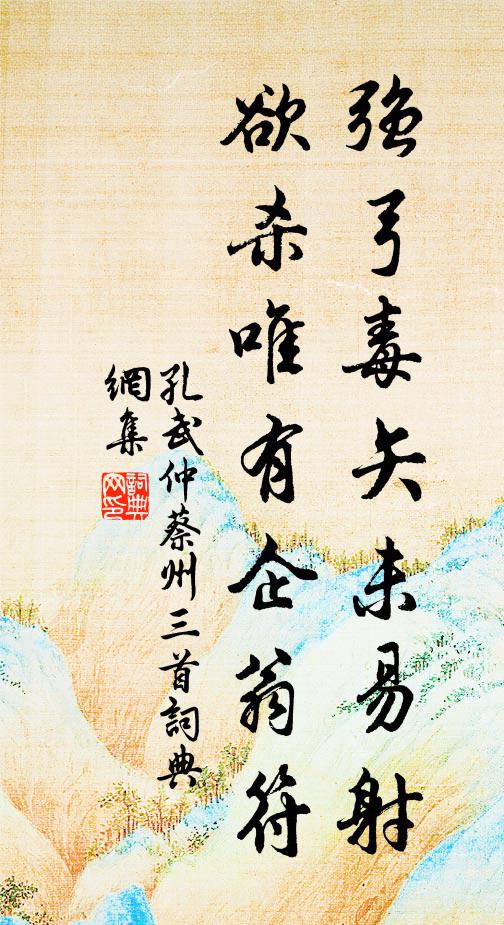 強弓毒矢未易射
欲杀唯有企翁符
孔武仲蔡州三首詞典
網集
詞典
网印